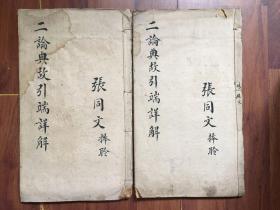 二論典故引端詳解
張同文
二論典故引端詳解
張同文